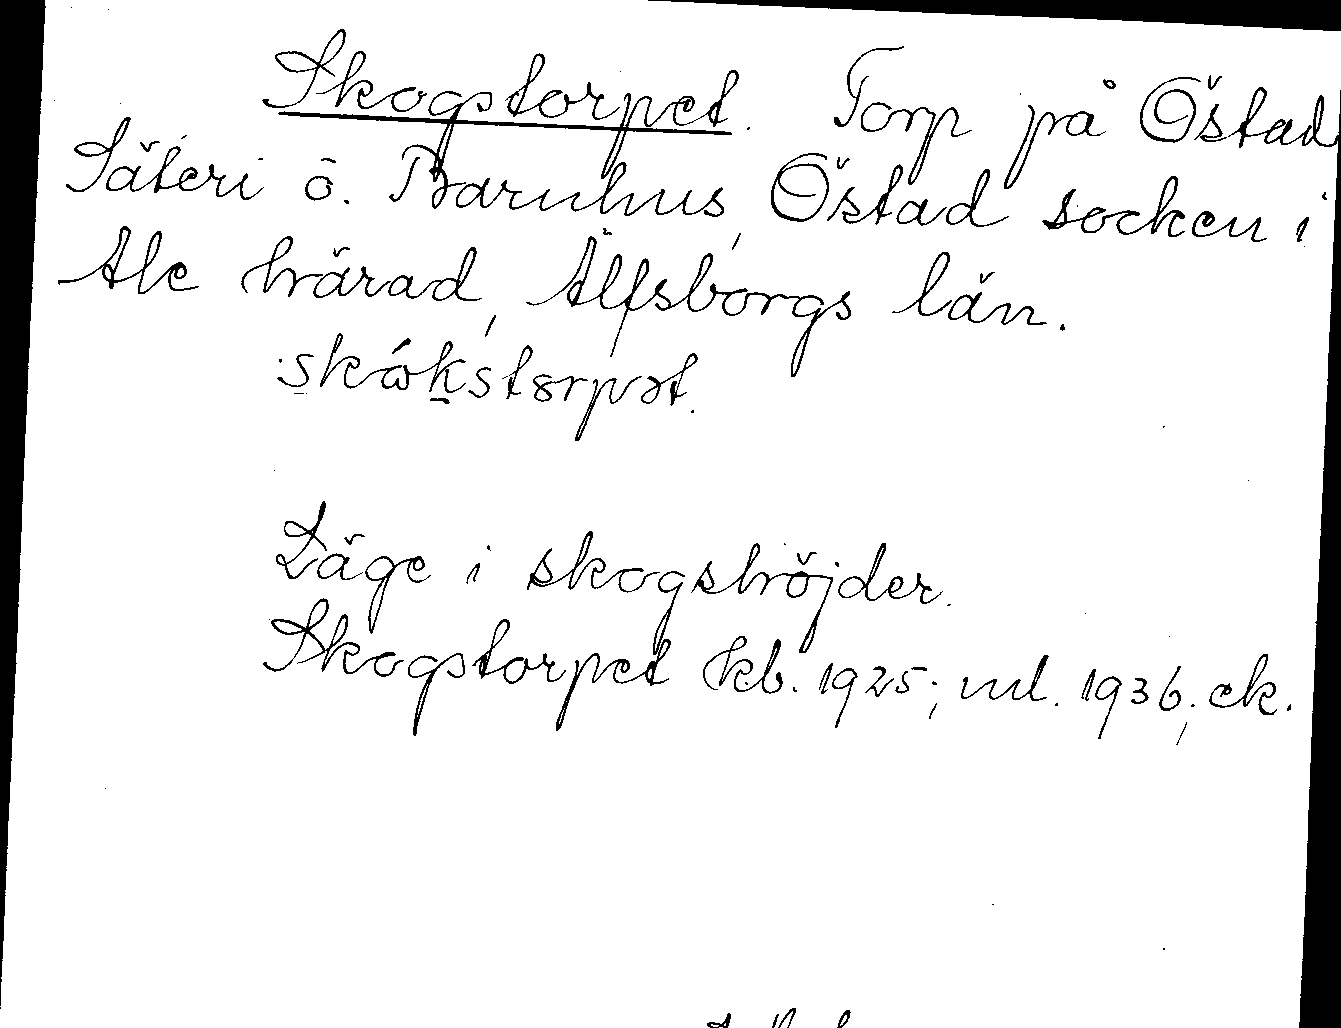 Skogstorpet. Torp på Östad
Säteri o. Barnhus, Östad socken i
Ale härad, Älfsborgs län.
skɷ́kstɔrpət.
Läge i skogshöjder.
Skogstorpet kb. 1925; ml. 1936; ek.